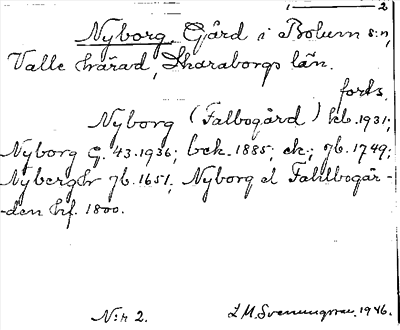 2
Nyborg. Gård i Bolum s:n,
Valle härad, Skaraborgs län.
forts.
Nyborg (Falbogård) kb. 1931;
Nyborg G. 43. 1936; bek. 1885; ek.; jb. 1749;
Nyberg jb. 1651; Nyborg el Fahlbogår-
-den hf. 1800.
N:r 2.
L M. Svenungsson. 1946.